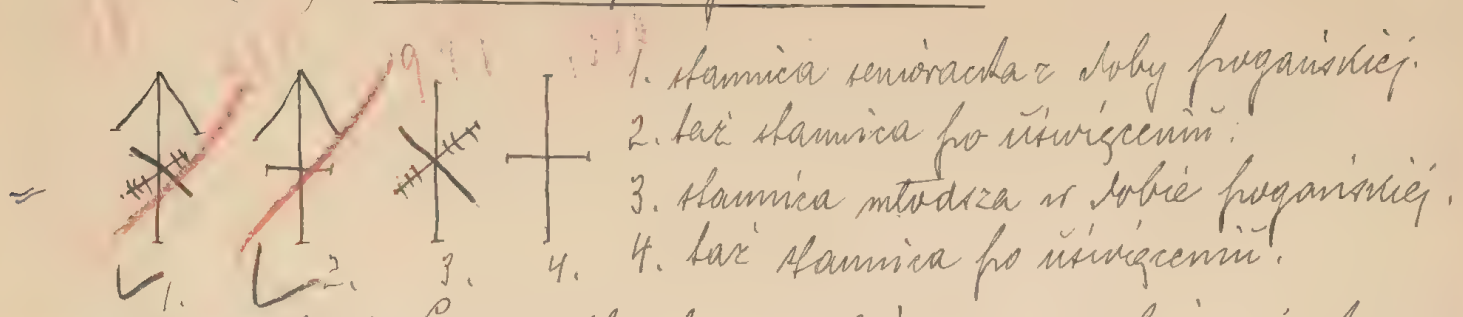 1. stannica senióracka z doby pogańskiej.
2. taż stannica po uświęceniu.
3. stannica młodsza w dobie pogańskiej.
4. taż stannica po uświęceniu.
1. 2. 3. 4.